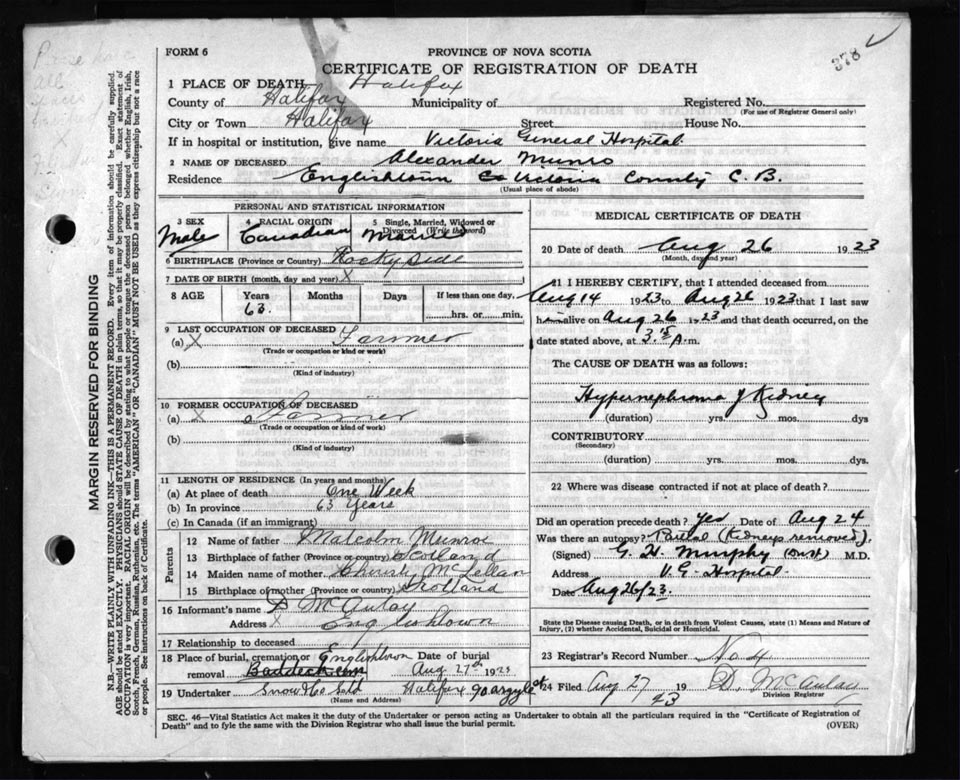 FORM 6
PROVINCE OF NOVA SCOTIA
378
CERTIFICATE OF REGISTRATION OF DEATH
1 PLACE OF DEATH Halifax
County of Halifax Municipality of Registered No.
(For use of Registrar General only)
City or Town Halifax Street House No.
If in hospital or institution, give name Victoria General Hospital
2 NAME OF DECEASED Alexander Munro
Residence Englishtown Victoria County C.B.
(Usual place of abode)
PERSONAL AND STATISTICAL INFORMATION
3 SEX Male
4 RACIAL ORIGIN Canadian
5 Single, Married, Widowed or Divorced (Write the word) Married
6 BIRTHPLACE (Province or Country) Rocky Side
7 DATE OF BIRTH (month, day and year) X
8 AGE Years 63 Months Days If less than one day, hrs. or min.
9 LAST OCCUPATION OF DECEASED
(a) X Farmer
(Trade or occupation or kind or work)
(b)
(Kind of industry)
10 FORMER OCCUPATION OF DECEASED
(a) X Farmer
(Trade or occupation or kind or work)
(b)
(Kind of industry)
11 LENGTH OF RESIDENCE (In years and months)
(a) At place of death One Week
(b) In province 63 Years
(c) In Canada (if an immigrant)
Parents
12 Name of father Malcolm Munroe
13 Birthplace of father (Province or country) Scotland
14 Maiden name of mother McLellan
15 Birthplace of mother (Province or country) Scotland
16 Informant's name D McAulay
Address X Englishtown
17 Relationship to deceased
18 Place of burial, cremation or removal Englishtown Baddeck Date of burial Aug 27th 1923
19 Undertaker Snow & Co Ltd Halifax 90 Argyle St
(Name and Address)
MEDICAL CERTIFICATE OF DEATH
20 Date of death Aug 26 1923
(Month, day and year)
21 I HEREBY CERTIFY, that I attended deceased from
Aug 14 1923 to Aug 26 1923 that I last saw
him alive on Aug 26 1923 and that death occurred, on
date stated above, at 3.15 A.m.
The CAUSE OF DEATH was as follows:
Hypernephroma of Kidney
(duration) yrs. mos. dys
CONTRIBUTORY
(Secondary)
(duration) yrs. mos. dys.
22 Where was disease contracted if not at place of death?
Did an operation precede death? Yes Date of Aug 24
Was there an autopsy? Partial (Kidneys removed)
(Signed) G. H. Murphy M.D.
Address V. G. Hospital
Date Aug 26/23.
State the Disease causing Death, or in death from Violent Causes, state (1) Means and Nature of Injury, (2) whether Accidental, Suicidal or Homicidal.
23 Registrar's Record Number No 4
24 Filed Aug 27 1923 D. McAulay
Division Registrar
SEC. 46—Vital Statistics Act makes it the duty of the Undertaker or person acting as Undertaker to obtain all the particulars required in the "Certificate of Registration of
Death" and to fyle the same with the Division Registrar who shall issue the burial permit. (OVER)
MARGIN RESERVED FOR BINDING
N.B.—WRITE PLAINLY WITH UNFADING INK—THIS IS A PERMANENT RECORD. Every item of information should be carefully supplied.
AGE should be stated EXACTLY. PHYSICIANS should STATE CAUSE OF DEATH in plain terms, so that it may be properly classified. Exact statement of
OCCUPATION is very important. RACIAL ORIGIN will be described by stating to what people or tongue the deceased person belonged whether English, Irish,
Scotch, French, German, Russian, Ruthenian, etc. The terms "AMERICAN" OR "CANADIAN" MUST NOT BE USED as they express citizenship but not a race
or people. See instructions on back of Certificate.